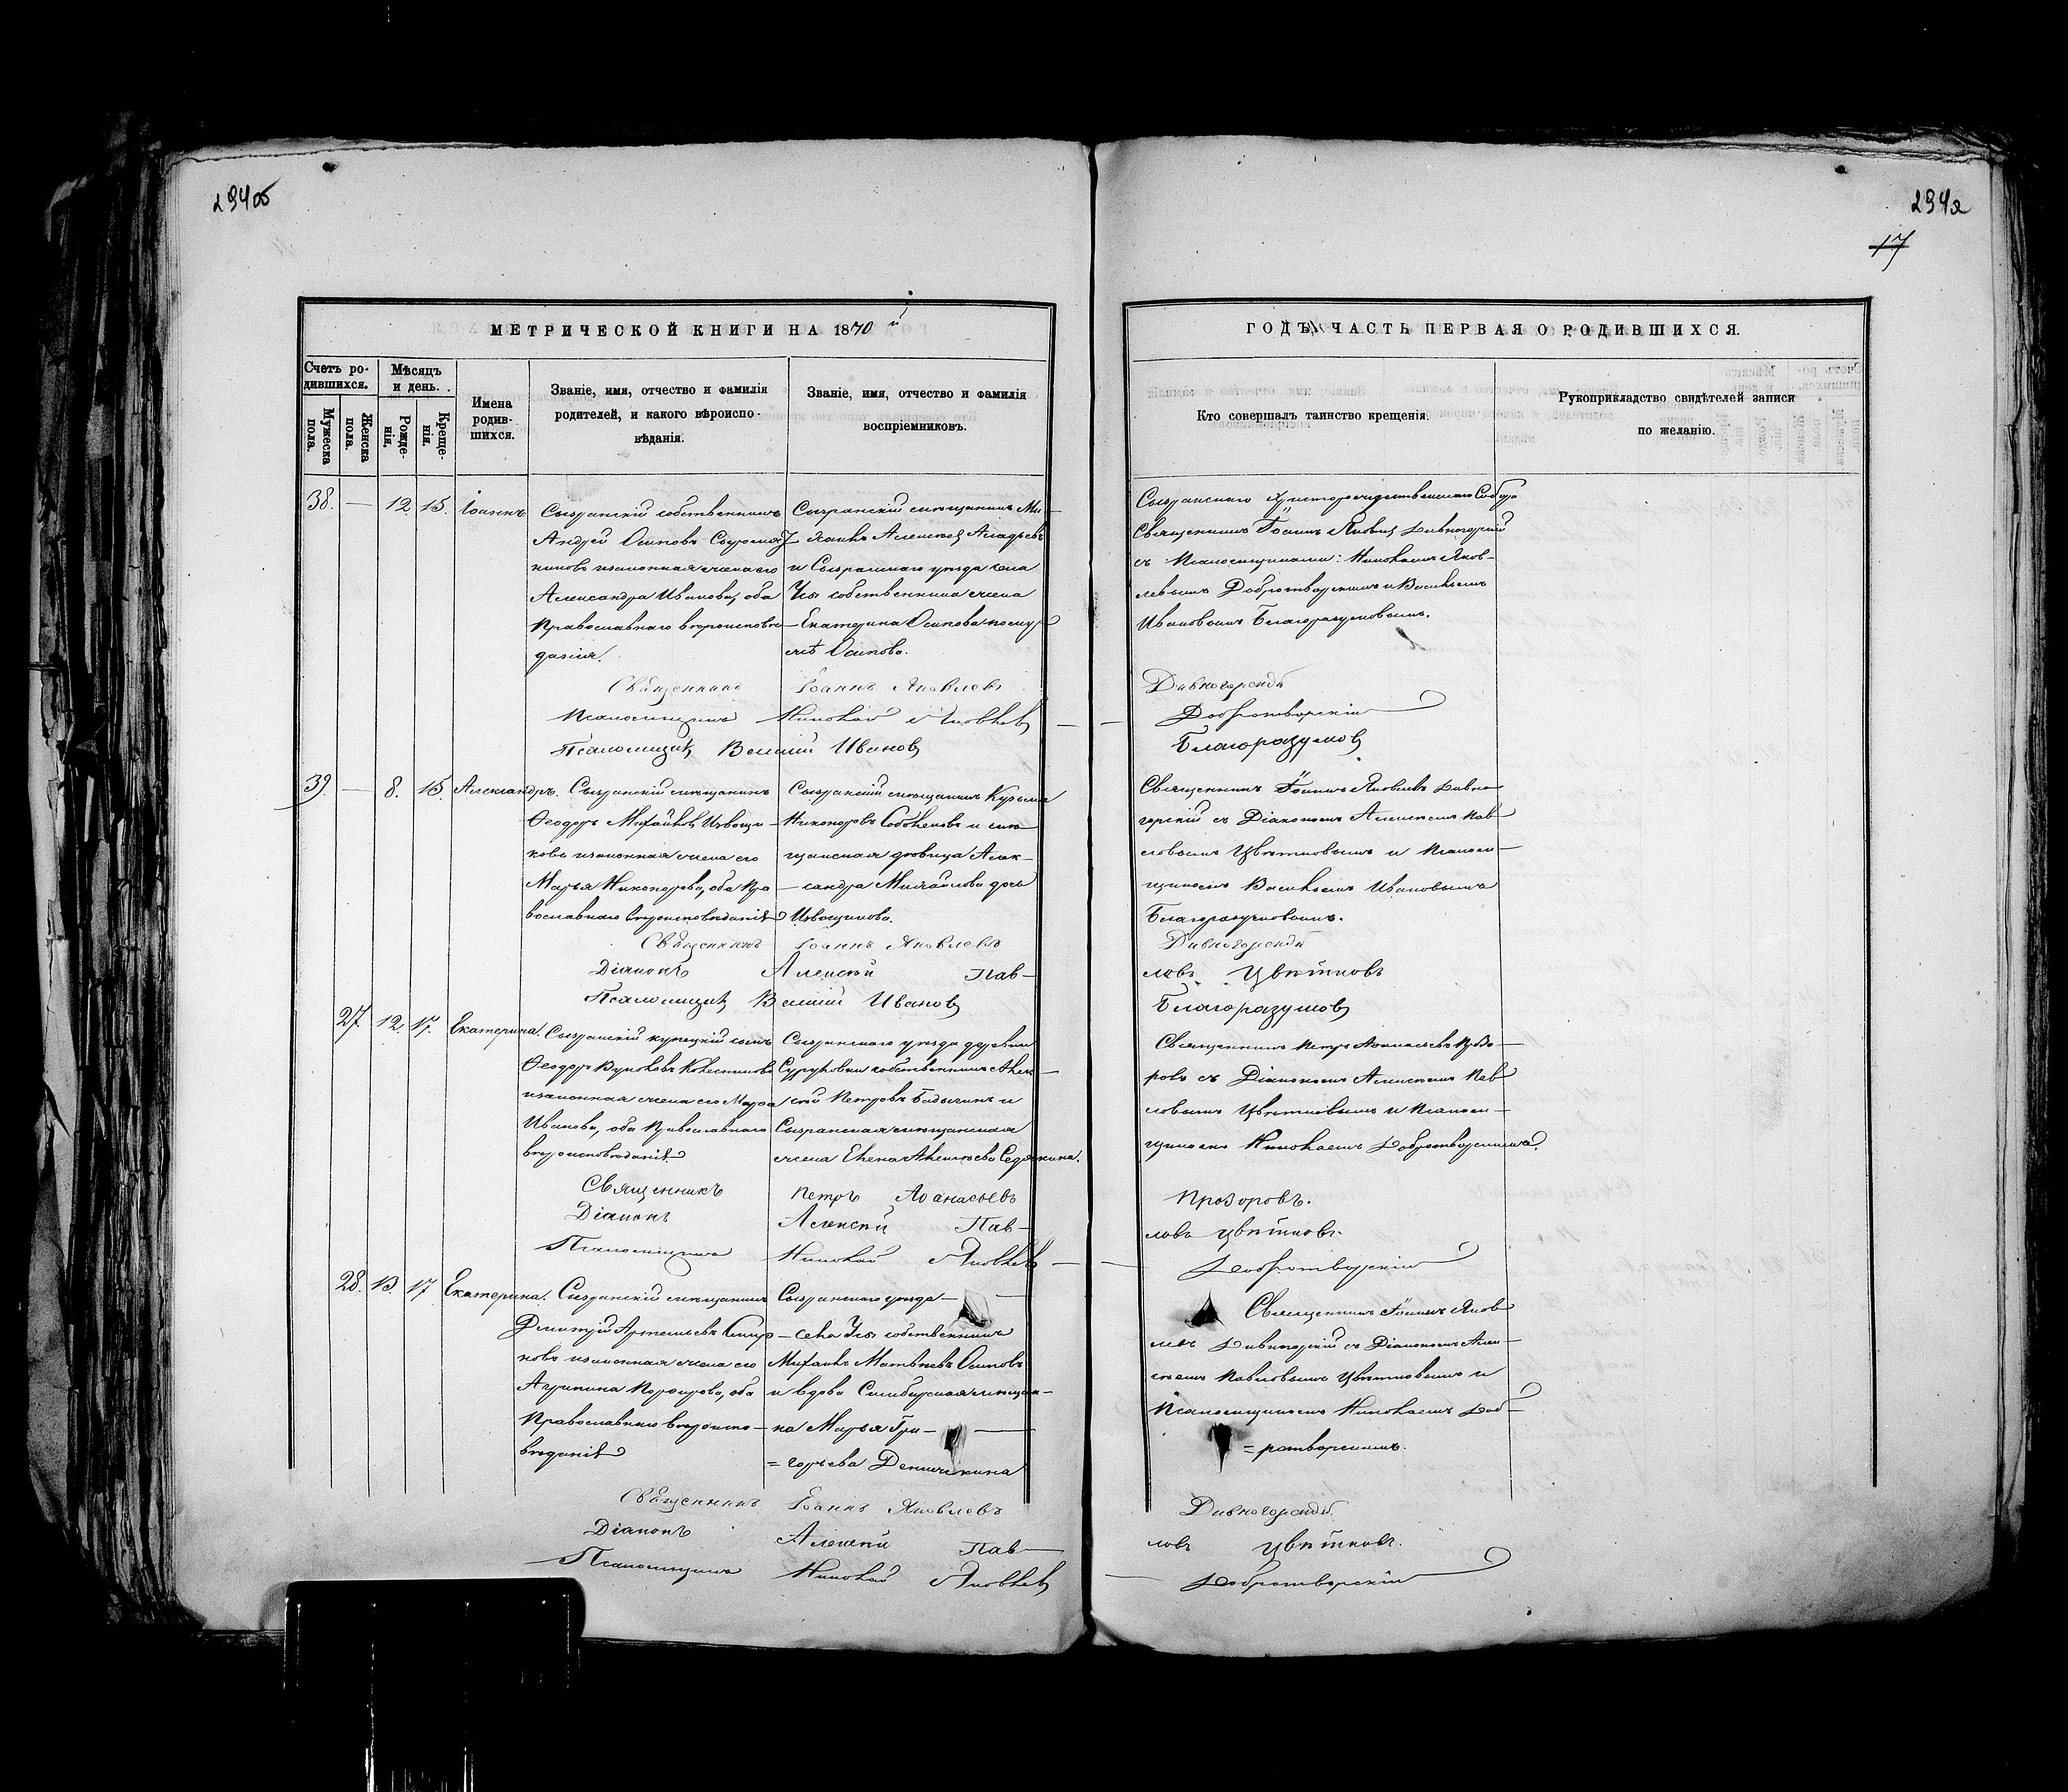 294об
294а
17
МЕТРИЧЕСКОЙ КНИГИ НА 1870й
ГОДЪ, ЧАСТЬ ПЕРВАЯ О РОДИВШИХСЯ.
Счетъ ро-
дившихся.
Мужеска пола.
Женска пола.
Мѣсяцъ
и день.
Рожде-
нія.
Креще-
нія.
Имена
родив-
шихся.
Званіе, имя, отчество и фамилія
родителей, и какого вѣроиспо-
вѣданія.
Званіе, имя, отчество и фамилія
воспріемниковъ.
Кто совершалъ таинство крещенія.
Рукоприкладство свидѣтелей записи
по желанію.
38. — 12. 15. Іоаннъ
Сызранскій собственникъ
Андрей Осиповъ Сыромят
никовъ и законная жена его
Александра Иванова, оба
Православнаго вѣроисповѣ
данія.
Сызранскій мѣщанинъ Ми-
хаилъ Алексѣевъ
и Сызранскаго уѣзда села
Усы собственника жена
Екатерина Осипова по му
жѣ Осипова.
Сызранскаго Христорождественскаго Собора
Священникъ Іоаннъ Яковлевъ Дивногорскій
съ Псаломщиками: Николаемъ Яков-
левымъ Добротворскимъ и Василіемъ
Ивановымъ Благоразумовымъ.
Священникъ Іоаннъ Яковлевъ Дивногорскій
Псаломщикъ Николай Яковлевъ — Добротворскій
Псаломщикъ Василій Ивановъ Благоразумовъ
39. — 8. 15. Александръ.
Сызранскій мѣщанинъ
Ѳеодоръ Михайловъ Извощи-
ковъ и законная жена его
Марья Никонорова, оба Пра
вославнаго вѣроисповѣданія
Сызранскій мѣщанинъ Кузьма
Никоноровъ Соболевъ и мѣ
щанская дѣвица Алек-
сандра Михайлова дочь
Извощикова.
Священникъ Іоаннъ Яковлевъ Дивно
горскій съ Діакономъ Алексѣемъ Пав
ловымъ Цвѣтковымъ и Псалом-
щикомъ Василіемъ Ивановымъ
Благоразумовымъ.
Священникъ Іоаннъ Яковлевъ Дивногорскій
Діаконъ Алексѣй Пав-ловъ Цвѣтковъ
Псаломщикъ Василій Ивановъ Благоразумовъ
27. 12. 17. Екатерина.
Сызранскій купецкій сынъ
Ѳеодоръ Вуколовъ Колесниковъ
и законная жена его Марѳа
Иванова, оба Православнаго
вѣроисповѣданія
Сызранскаго уѣзда деревни
собственникъ Алек-
сѣй Петровъ и
Сызранская мѣщанская
жена Елена Алексѣева Седякина.
Священникъ Петръ Аѳанасьевъ Прозо-
ровъ съ Діакономъ Алексѣемъ Пав
ловымъ Цвѣтковымъ и Псалом-
щикомъ Николаемъ Добротворскимъ.
Священникъ Петръ Аѳанасьевъ Прозоровъ.
Діаконъ Алексѣй Пав-ловъ Цвѣтковъ.
Псаломщикъ Николай Яковлевъ — Добротворскій
28. 13. 17. Екатерина.
Сызранскій мѣщанинъ
Дмитрій Артемьевъ Смир
новъ и законная жена его
Агрипина Порфирова, оба
Православнаго вѣроиспо-
вѣданія
Сызранскаго уѣзда —
села Усы собственникъ
Михаилъ Матвѣевъ Осиповъ
и вдова Симбирская мѣщан-
ка Марья Гри-
=горьева
Священникъ Іоаннъ Яков
левъ Дивногорскій съ Діакономъ Алек-
сѣемъ Павловымъ Цвѣтковымъ и
Псаломщикомъ Николаемъ Доб-
=ротворскимъ.
Священникъ Іоаннъ Яковлевъ Дивногорскій.
Діаконъ Алексѣй Пав-ловъ Цвѣтковъ.
Псаломщикъ Николай Яковлевъ — Добротворскій